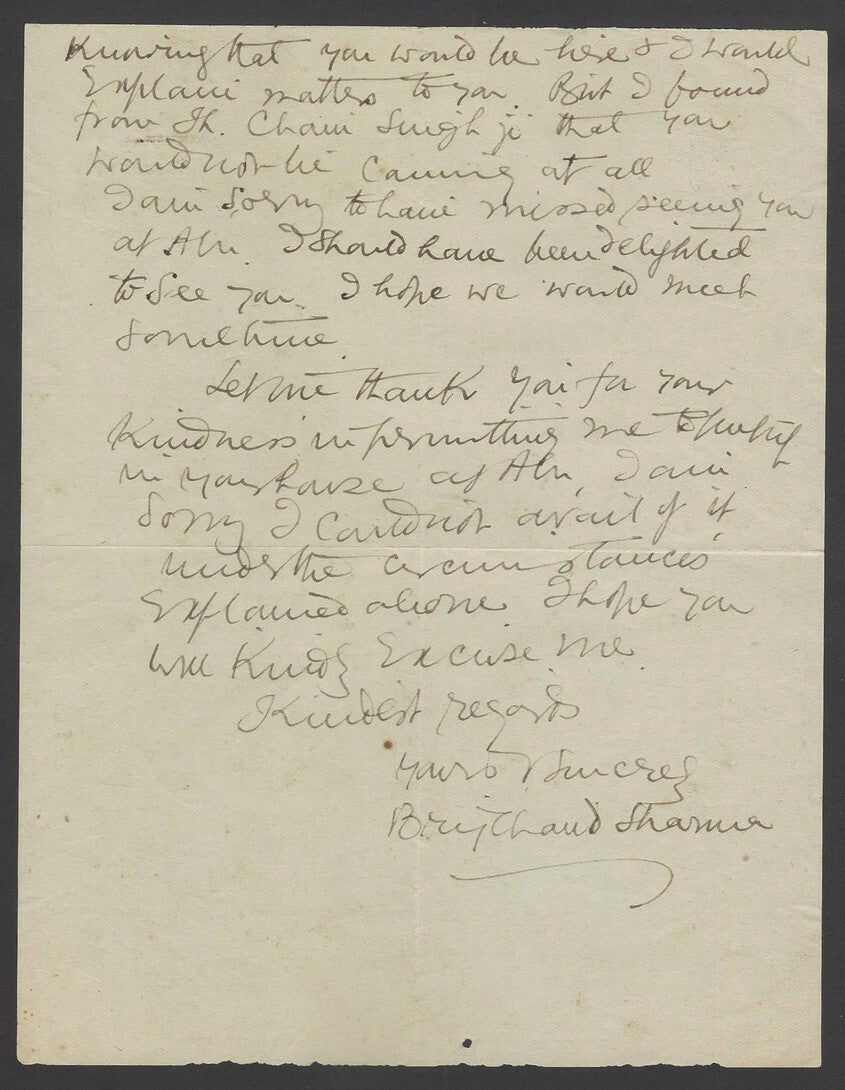 Knowing that you would be here & I would
Explain matters to you. But I found
from Th. Chain Singh ji that you
would not be coming at all
I am sorry to have missed seeing you
at Abu. I should have been delighted
to see you. I hope we would meet
sometime.
Let me thank you for your
Kindness in permitting me to put up
in your house at Abu, I am
sorry I could not avail of it
under the circumstances
Explained above. I hope you
will Kindly Excuse me.
Kindest regards
Yours Sincerely
Brij Chand Sharma